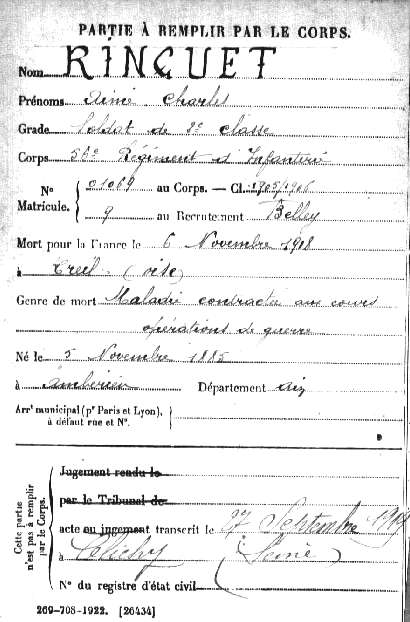 PARTIE À REMPLIR PAR LE CORPS.
Nom RINGUET
Prénoms Aimé Charles
Grade Soldat de 2e classe
Corps 56e Régiment d'Infanterie
N° Matricule. 01069 au Corps. — Cl. 1905/1906
9 au Recrutement Belley
Mort pour la France le 6 Novembre 1918
à Creil (Oise)
Genre de mort Maladie contractée au cours
opérations de guerre
Né le 5 Novembre 1885
à Ambérieu Département Ain
Arrt municipal (pr Paris et Lyon),
à défaut rue et N°.
Cette partie n'est pas à remplir par le Corps.
Jugement rendu le
par le Tribunal de
acte ou jugement transcrit le 27 Septembre
à Clichy (Seine)
N° du registre d'état civil
269-708-1922. [26434]